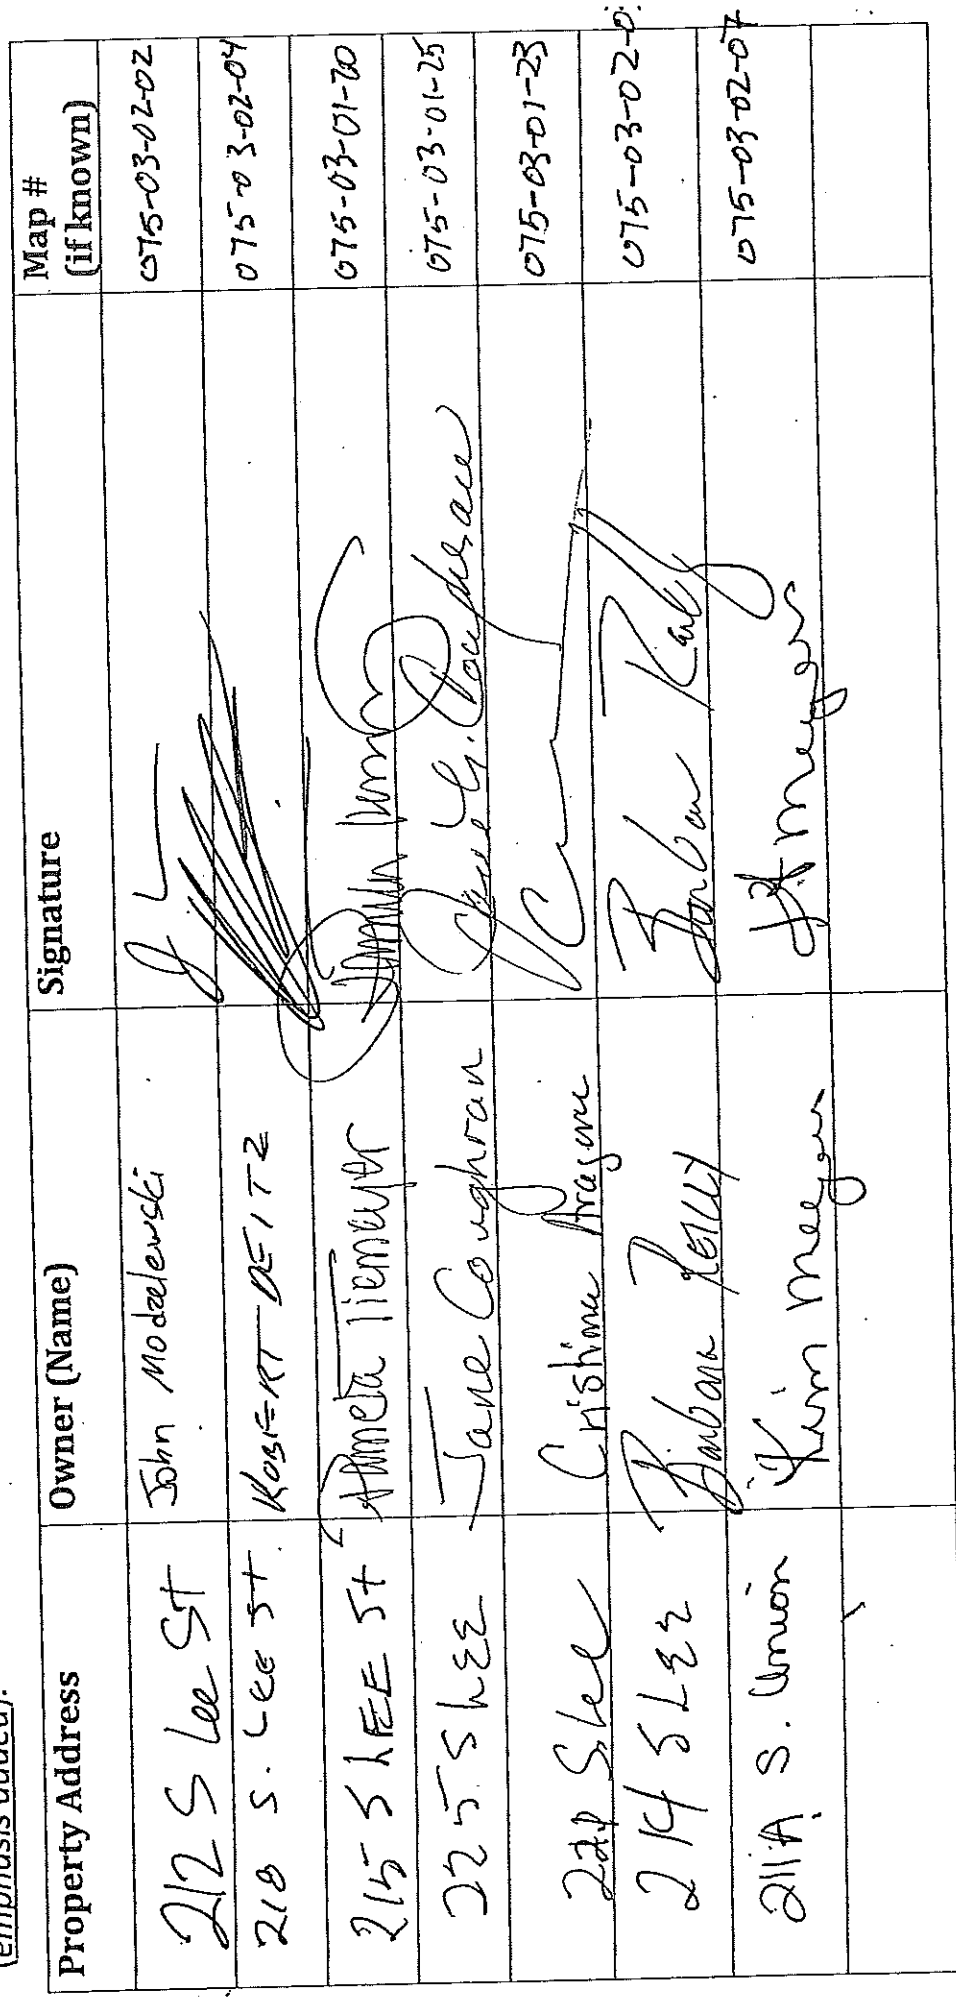 (emphasis added).
Property Address Owner (Name) Signature Map # (if known)
212 S Lee St John Modzelewski 075-03-02-02
218 S. Lee St. ROBERT DEITZ 075-03-02-04
215 S LEE St Pamela Tiemeyer 075-03-01-20
225 S LEE Jane Coughran 075-03-01-25
S Lee Cristina Aragona 075-03-01-23
214 S LEE Barbara Reilly Barbara Reilly 075-03-02-0
211A S. Union Kim Meyer K Meyer 075-03-02-07